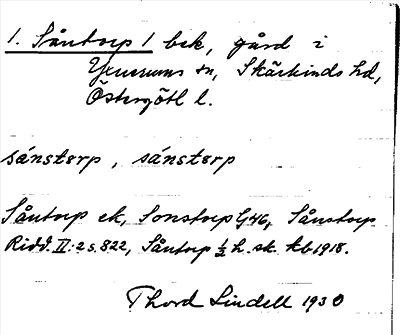 1. Såntorp 1 bek, gård i
Yxnerums sn, Skärkinds hd,
Östergötl l.
sånstərp, sånstərp
Såntorp ek, Sonstorp G46, Sånstorp
Ridd. II:2 s. 822, Såntorp ½ h. sk. kb 1918.
Thord Lindell 1930